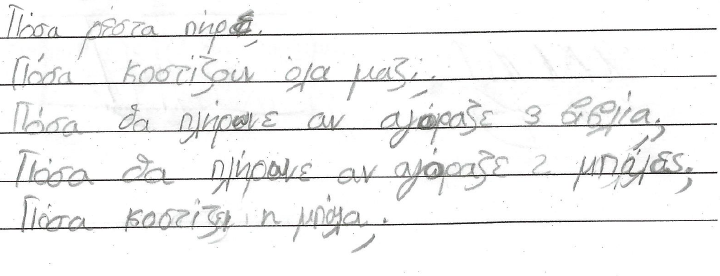 Πόσα ρέστα πήρε;
Πόσα κοστίζουν όλα μαζί;
Πόσα θα πλήρωνε αν αγόραζε 3 βιβλία;
Πόσα θα πλήρωνε αν αγόραζε 2 μπάλες;
Πόσα κοστίζει η μπάλα;